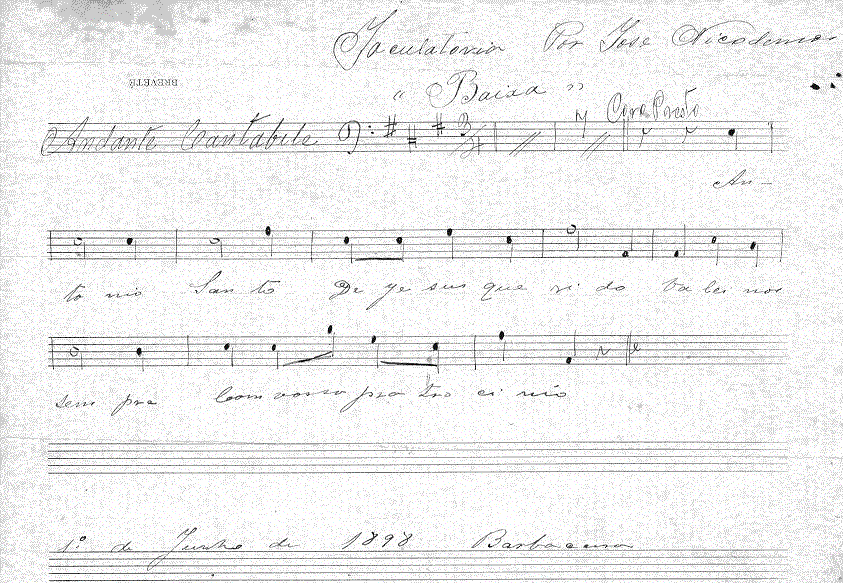 Jaculatória Por José Nicodemos
BREVETE
" Baixa "
Andante Cantabile 3/4 Coro Presto
An-
to nio San to De Je sus que ri do Va lei nos
sem pre Com vosso pra tro ci nio
1º de Junho de 1898 Barbacena